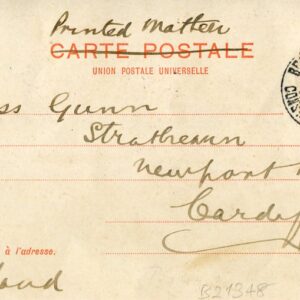 Printed Matter
CARTE POSTALE
UNION POSTALE UNIVERSELLE
ss Gunn
Strathearn
Newport
Cardiff
à l'adresse.
B21348